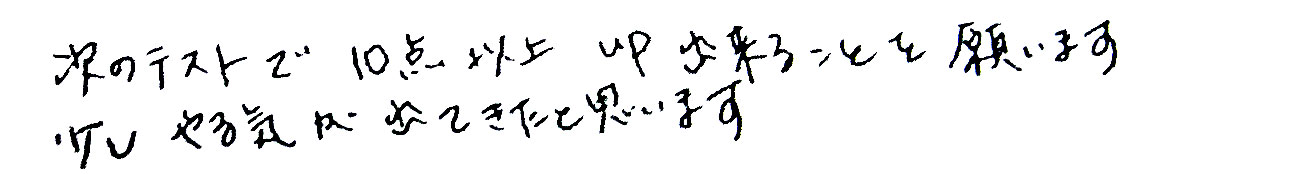 次のテストで 10点以上 up 出来ることを願います
少し やる気が出てきたと思います